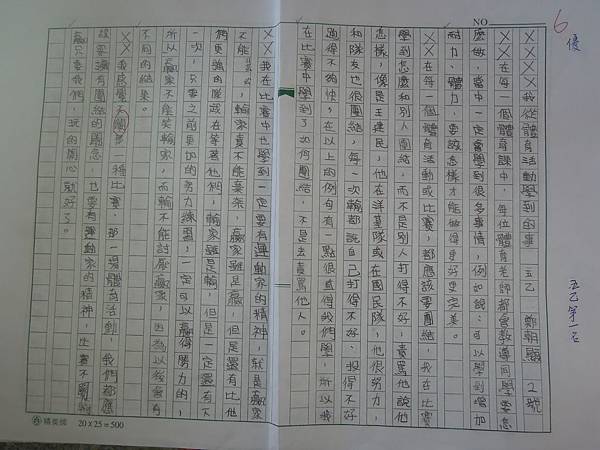 NO
6
優
五乙第一名
××××我從體育活動學到的事 五乙 鄭朝顯 2號
××在每一個體育課中,每位體育老師都會教導同學要怎
麼做,當中一定會學到很多事情,例如說:可以學到增加
耐力、體力,要該怎樣才能做得更好更完美。
××在每一個體育活動或比賽,都應該要團結,我在比賽
學到怎麼和別人團結,而不是別人打得不好,責罵他說他
怎樣,像是王建民,他在洋基隊或在國民隊,他很努力,
和隊友也很團結,每一次輸都說自己打得不好、投得不好
過得不夠快,在以上的例句有一點很值得我們學,所以我
在比賽中學到了如何團結,不是去責罵他人。
××我在比賽中也學到一定要有運動家的精神,就是贏家
不能 ,輸家責不能棄柔,贏家雖是贏,但是還有比他
們更強的隊或在等著他們,輸家雖是輸,但是一定還有下
一次,只要之前更加的努力練習,一定可以贏得勝力的,
所以贏家不能笑輸家,而輸不能討厭贏家,因為以後會有
不同的結果。
××我感覺不關第一種比賽,那一場體育活動,我們都應
該要還有團結的觀念,也要有運動家的精神,比賽不關輸
贏只要我們,玩的開心就好了。
20×25=500